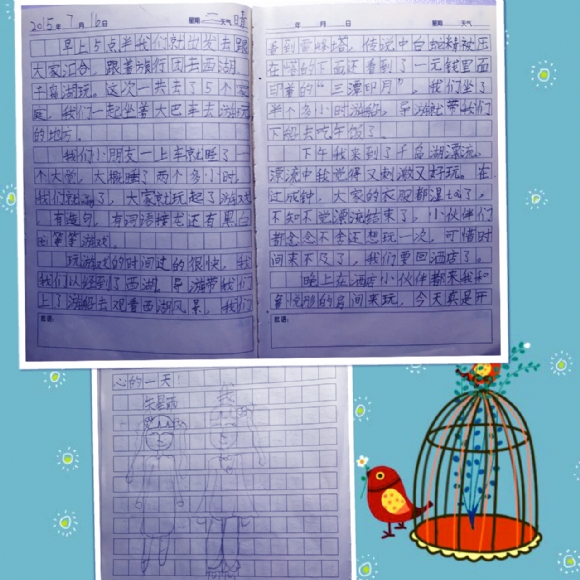 2015年7月16日 星期二 天气 晴
早上5点半我们就出发去跟
大家汇合，跟着旅行团去西湖、
千岛湖玩。这次一共去了5个家
庭，我们一起坐着大巴车去游玩
的地方。
我们小朋友一上车就睡了一
个大觉，大概睡了两个多小时，
我们就醒了，大家就玩起了游戏
有造句，有词语接龙还有黑白
等等游戏。
玩游戏的时间过的很快，
我们以经到了西湖，导游带我们
上了游船去观看西湖风景，我们
批语：
年 月 日 星期 天气
看到雷峰塔，传说中白蛇精被压
在塔的下面还看到了一元钱里面
印章的“三潭印月”，我们坐了
半个多小时游船，导游就带我们
下船去吃午饭了。
下午我来到了千岛湖漂流，
漂流中我觉得又刺激又好玩。在
过成钟，大家的衣服都湿tou了，
不知不觉漂流结束了，小伙伴们
都念念不舍还想玩一次，可惜时
间来不及了，我们要回酒店了。
晚上在酒店小伙伴都来我和
的房间来玩，今天真是开
批语：
心的一天！
我